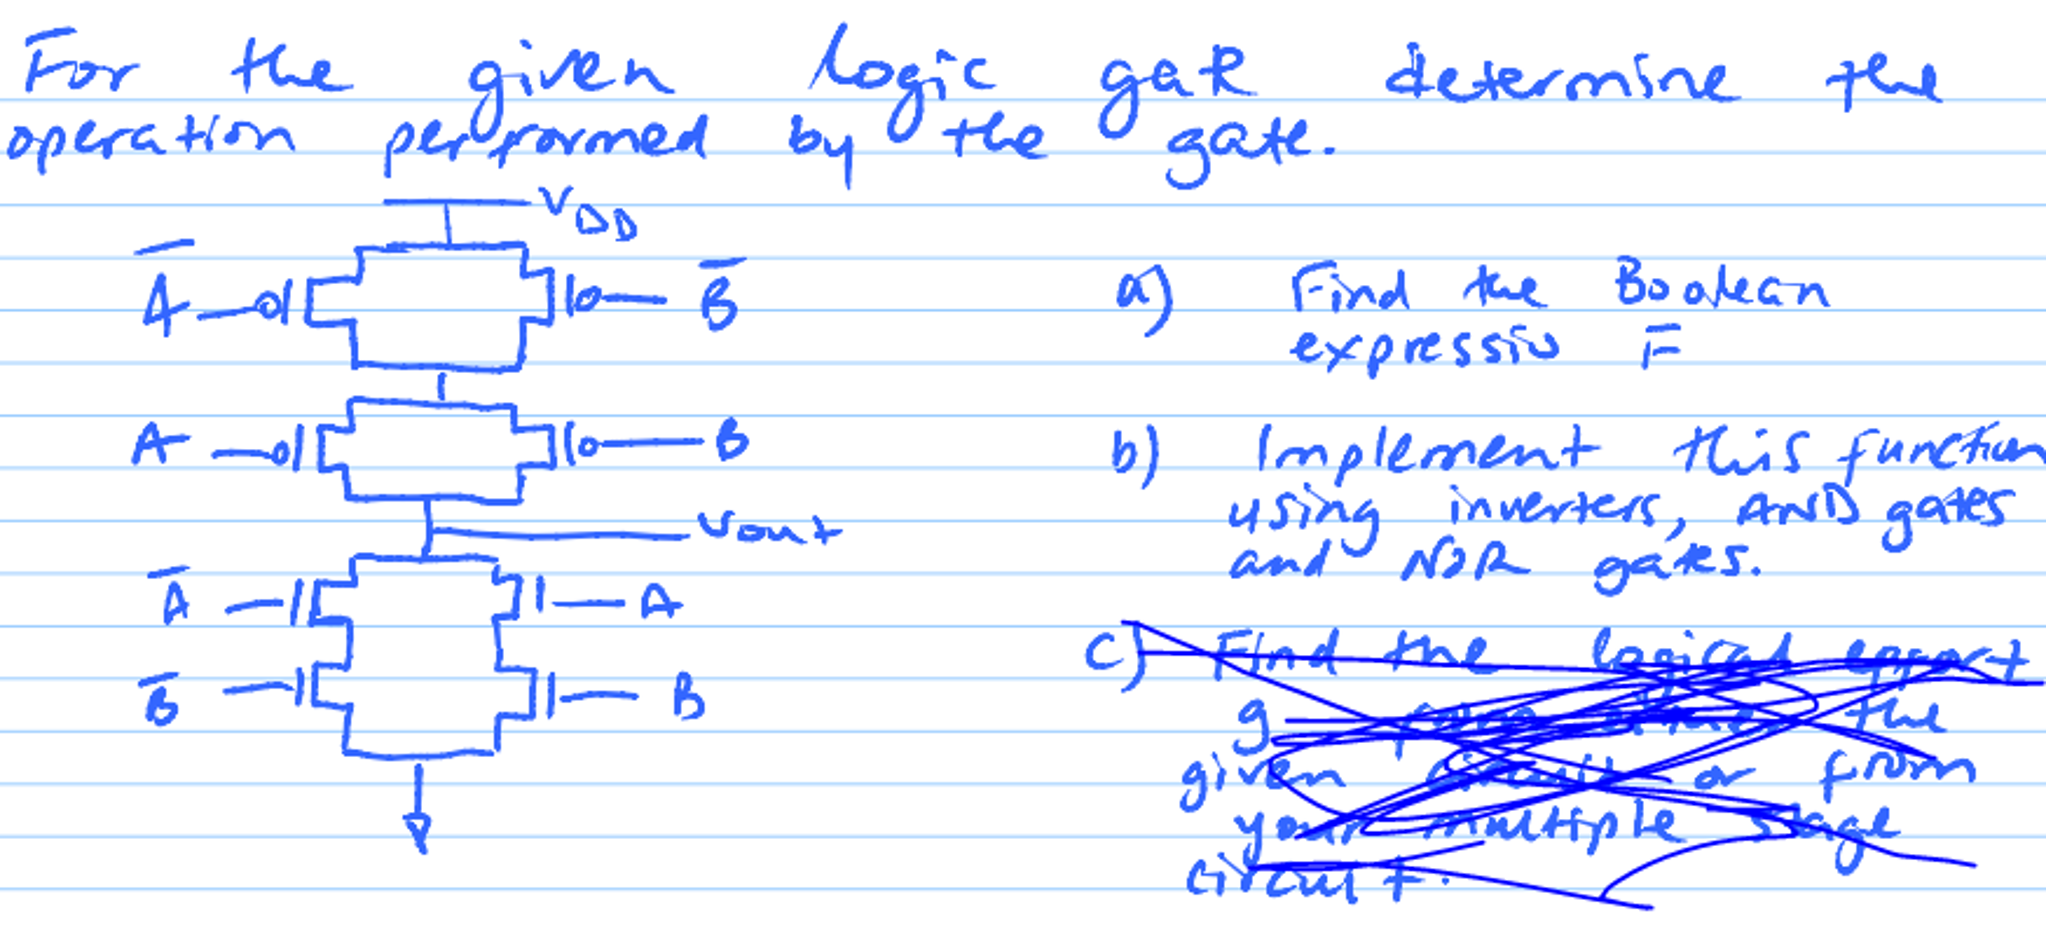 For the given logic gate determine the
operation performed by the gate.
VDD
A̅
B̅
a) Find the Boolean
expression F
A
B
b) Implement this function
using inverters, AND gates
and NOR gates.
Vout
A̅
A
B̅
B
c) Find the logical effort
g the
given circuit or from
your multiple stage
circuit.